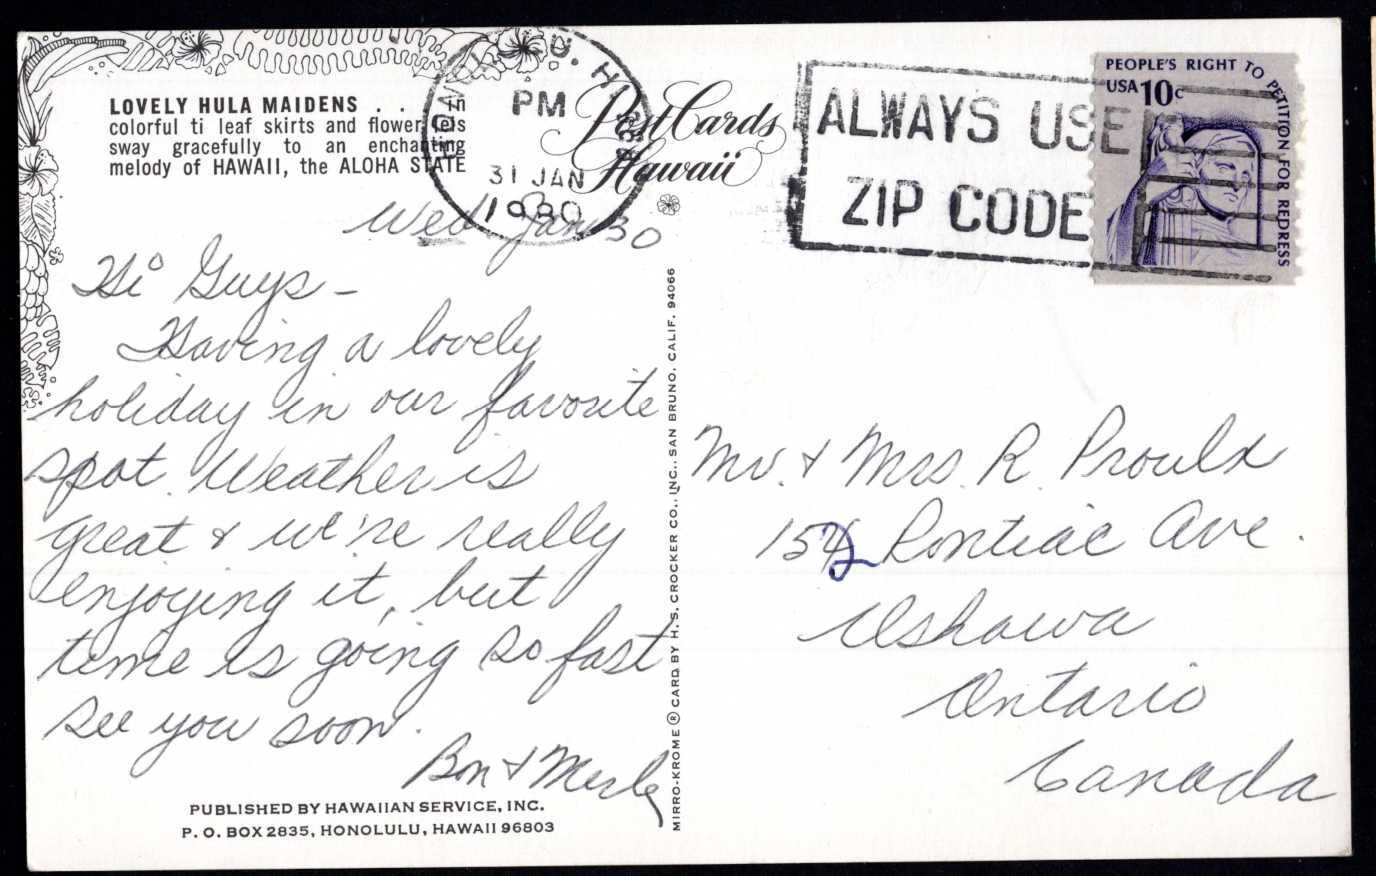 LOVELY HULA MAIDENS . . . in
colorful ti leaf skirts and flower leis
sway gracefully to an enchanting
melody of HAWAII, the ALOHA STATE
Post Cards
Hawaii
HONOLULU, HI
PM
31 JAN
1980
ALWAYS USE
ZIP CODE
PEOPLE'S RIGHT TO PETITION FOR REDRESS
USA 10c
Wed Jan 30
Hi Guys -
Having a lovely
holiday in our favorite
spot. Weather is
great & we're really
enjoying it, but
time is going so fast
see you soon.
Bon & Merle
Mr. & Mrs. R. Proulx
152 Pontiac Ave.
Oshawa
Ontario
Canada
PUBLISHED BY HAWAIIAN SERVICE, INC.
P. O. BOX 2835, HONOLULU, HAWAII 96803
MIRRO-KROME ® CARD BY H. S. CROCKER CO., INC., SAN BRUNO, CALIF. 94066